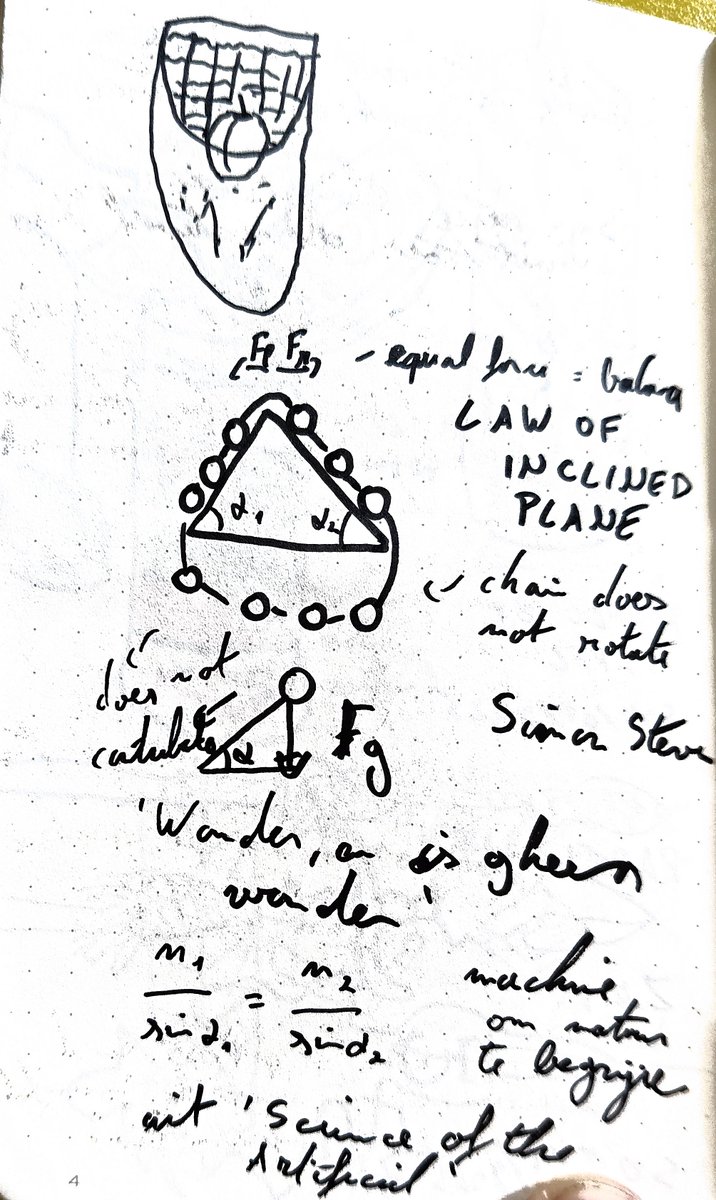 - equal force = balans
LAW OF
INCLINED
PLANE
α₁ α₂
chain does
not rotate
does not
α Fg
Simon Stevin
'Wonder, en is gheen
wonder'
n₁ / sin α₁ = n₂ / sin α₂
machine
om natuur
te begrijpe
uit 'Science of the
Artificial'
4